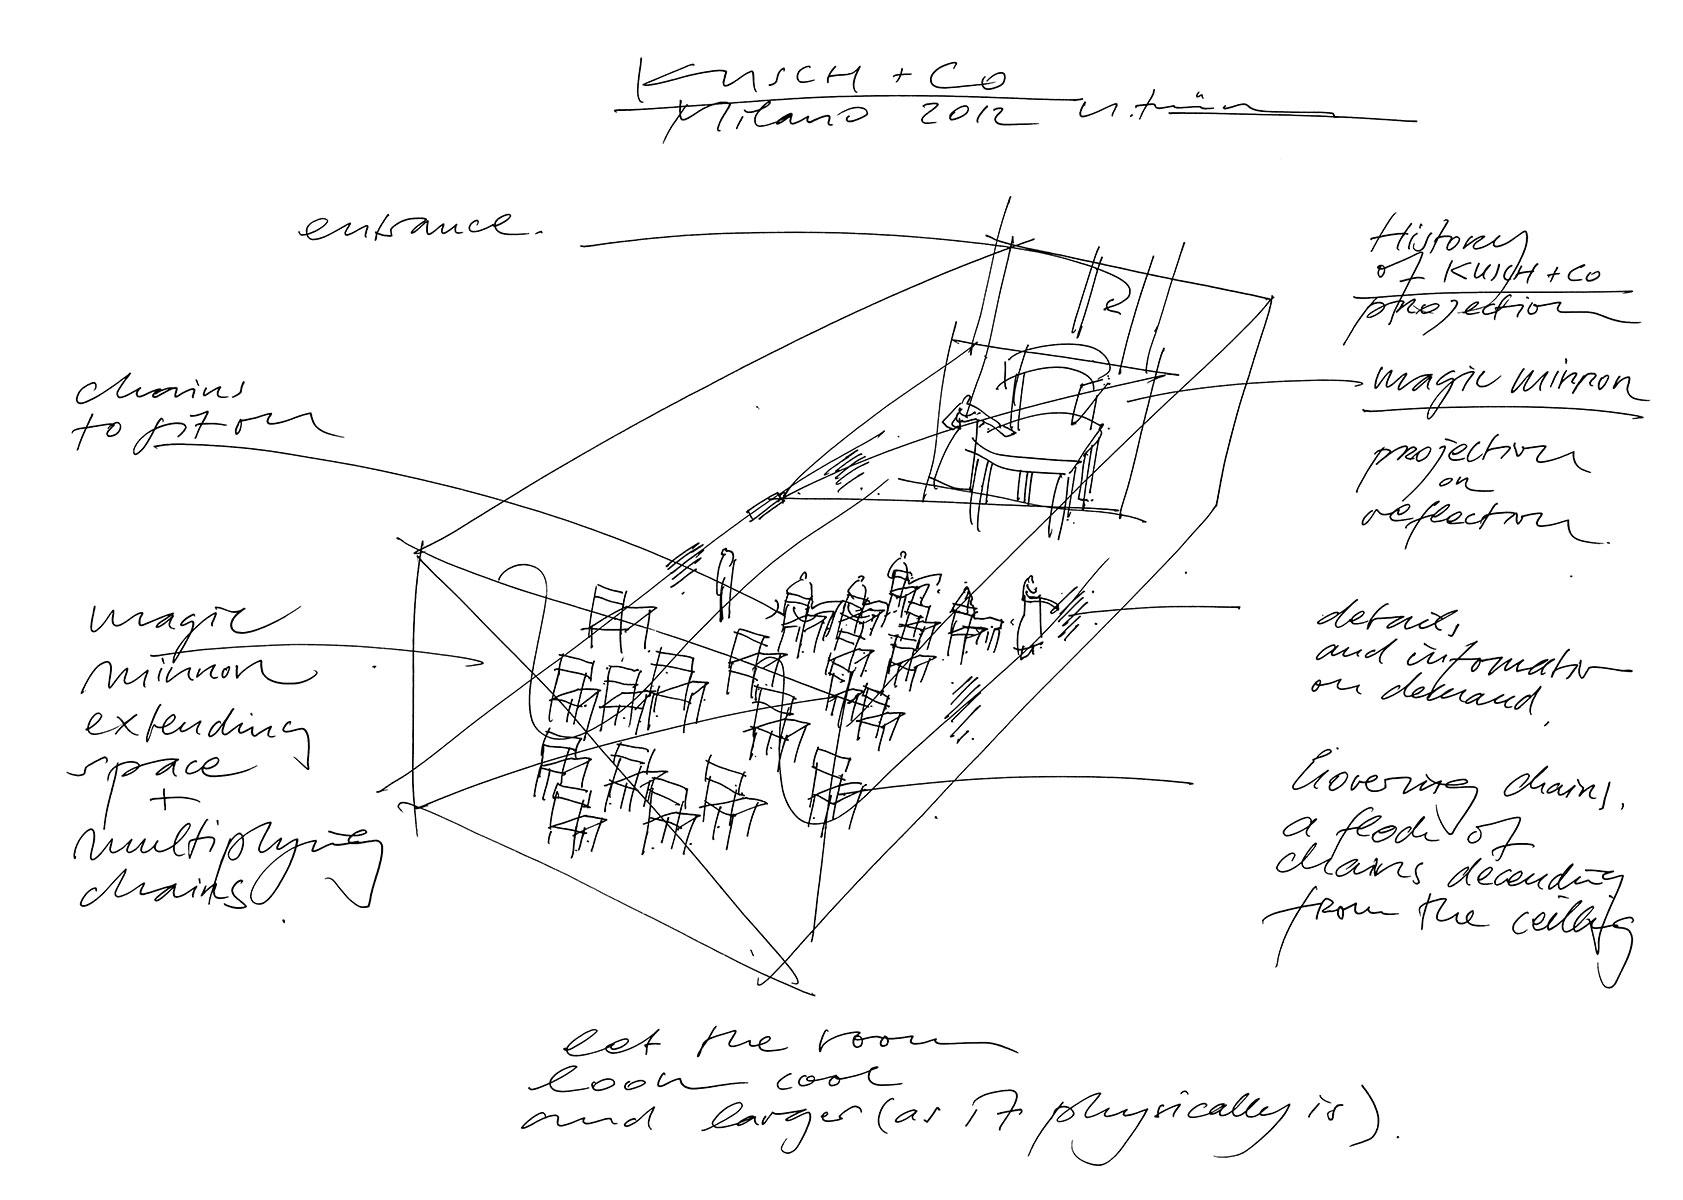 KUSCH + CO
Milano 2012
entrance.
History
of KUSCH + CO
projection
magic mirror
projection
on
reflection.
chairs
to sit on
magic
mirror
extending
space
+
multiplying
chairs.
details
and information
on demand.
hovering chairs.
a flock of
chairs decending
from the ceiling
let the room
look cool
and larger (as it physically is).